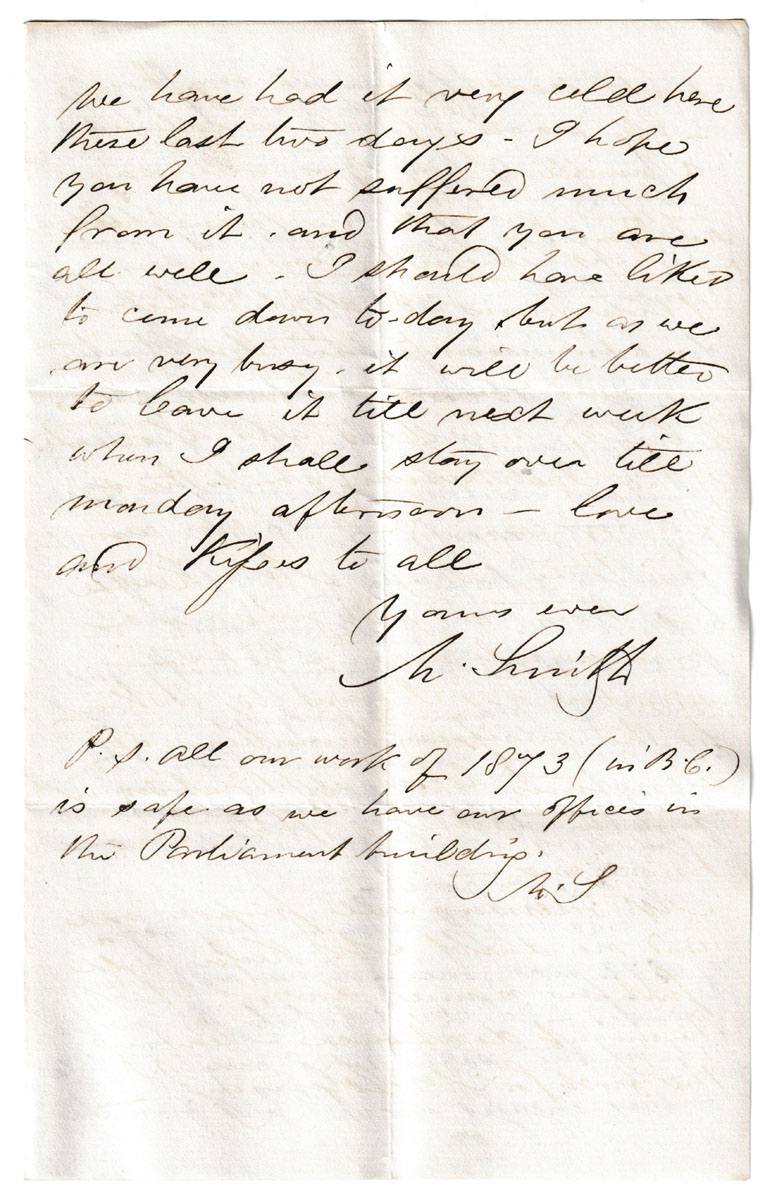 We have had it very cold here
these last two days - I hope
you have not suffered much
from it . and that you are
all well - I should have liked
to come down to-day but as we
are very busy - it will be better
to leave it till next week
when I shall stay over till
monday afternoon - love
and Kisses to all
Yours ever
M. Smith
P. S. all our work of 1873 (in B.C.)
is safe as we have our offices in
the Parliament buildings.
M. S